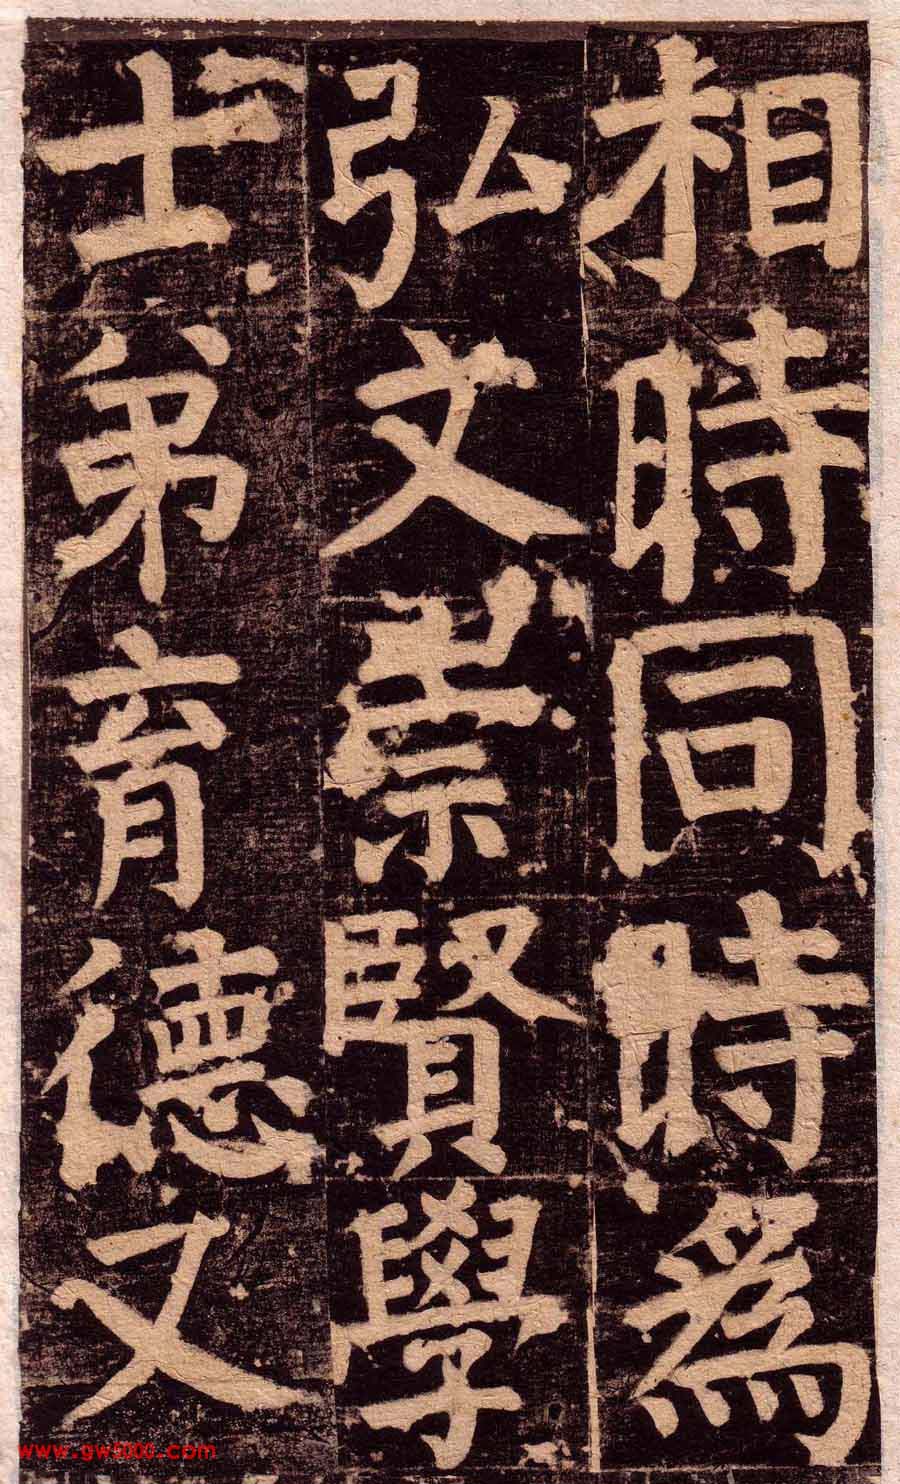 相時同時為
弘文崇賢學
士弟育德又
www.gw5000.com